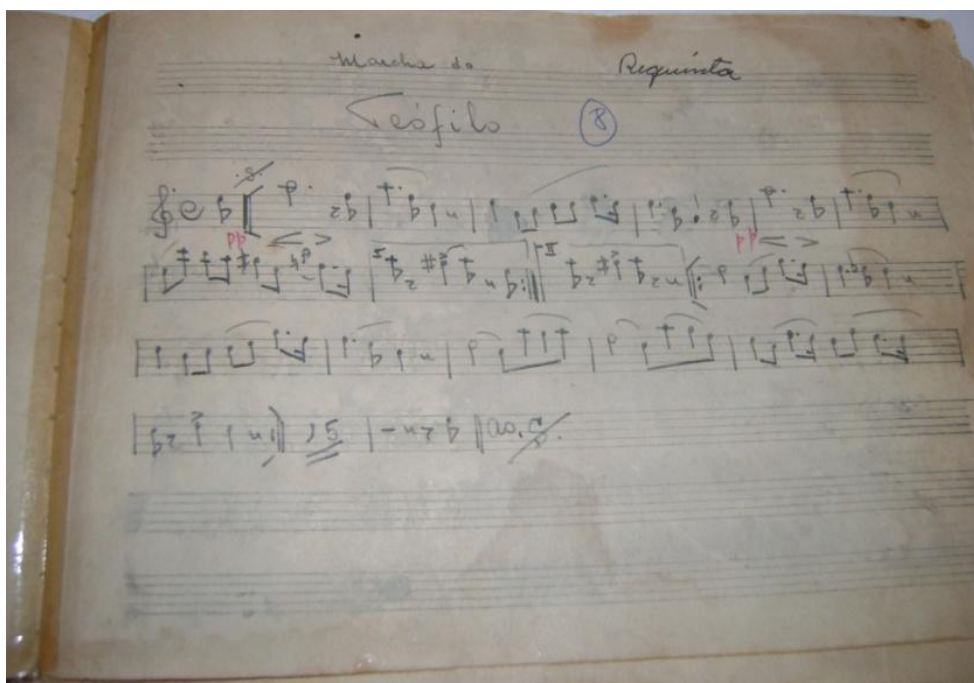 Marcha do Requinta
Teófilo 8
pp pp
I II
15
ao